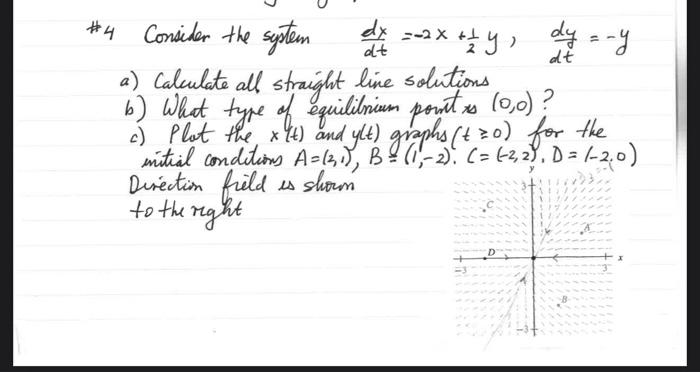 #4 Consider the system dx/dt = -2x + 1/2 y, dy/dt = -y
a) Calculate all straight line solutions
b) What type of equilibrium point is (0,0)?
c) Plot the x(t) and y(t) graphs (t ≥ 0) for the
initial conditions A=(2,1), B=(1,-2). C=(-2,2), D=(-2,0)
Direction field is shown
to the right
y
3
C
A
D
x
-3
3
B
-3